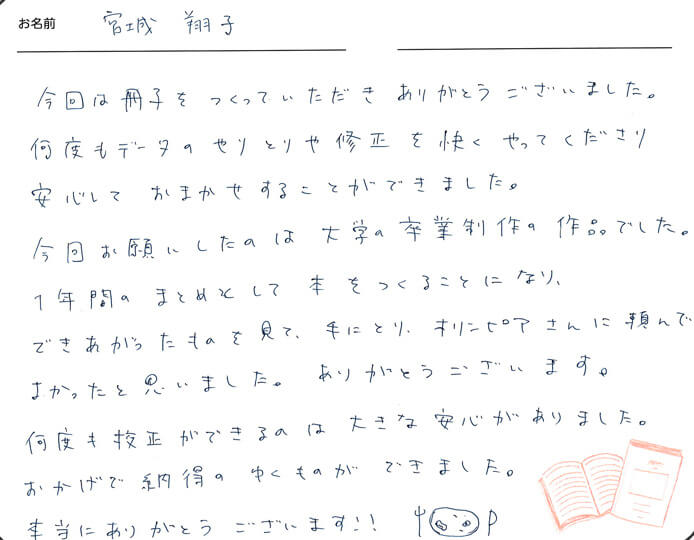 お名前 宮城 翔子
今回は冊子をつくっていただきありがとうございました。
何度もデータのやりとりや修正を快くやってくださり
安心しておまかせすることができました。
今回お願いしたのは大学の卒業制作の作品でした。
1年間のまとめとして本をつくることになり、
できあがったものを見て、手にとり、オリンピアさんに頼んで
よかったと思いました。ありがとうございます。
何度も校正ができるのは大きな安心がありました。
おかげで納得のゆくものができました。
本当にありがとうございます!!